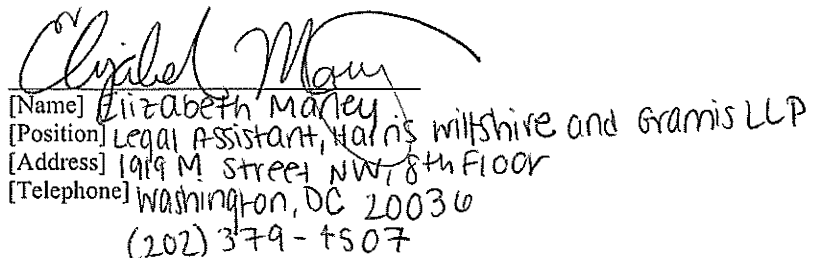 [Name] Elizabeth Maney
[Position] Legal Assistant, Harris Wiltshire and Grannis LLP
[Address] 1919 M Street NW, 8th Floor
[Telephone] Washington, DC 20036
(202) 379-4507